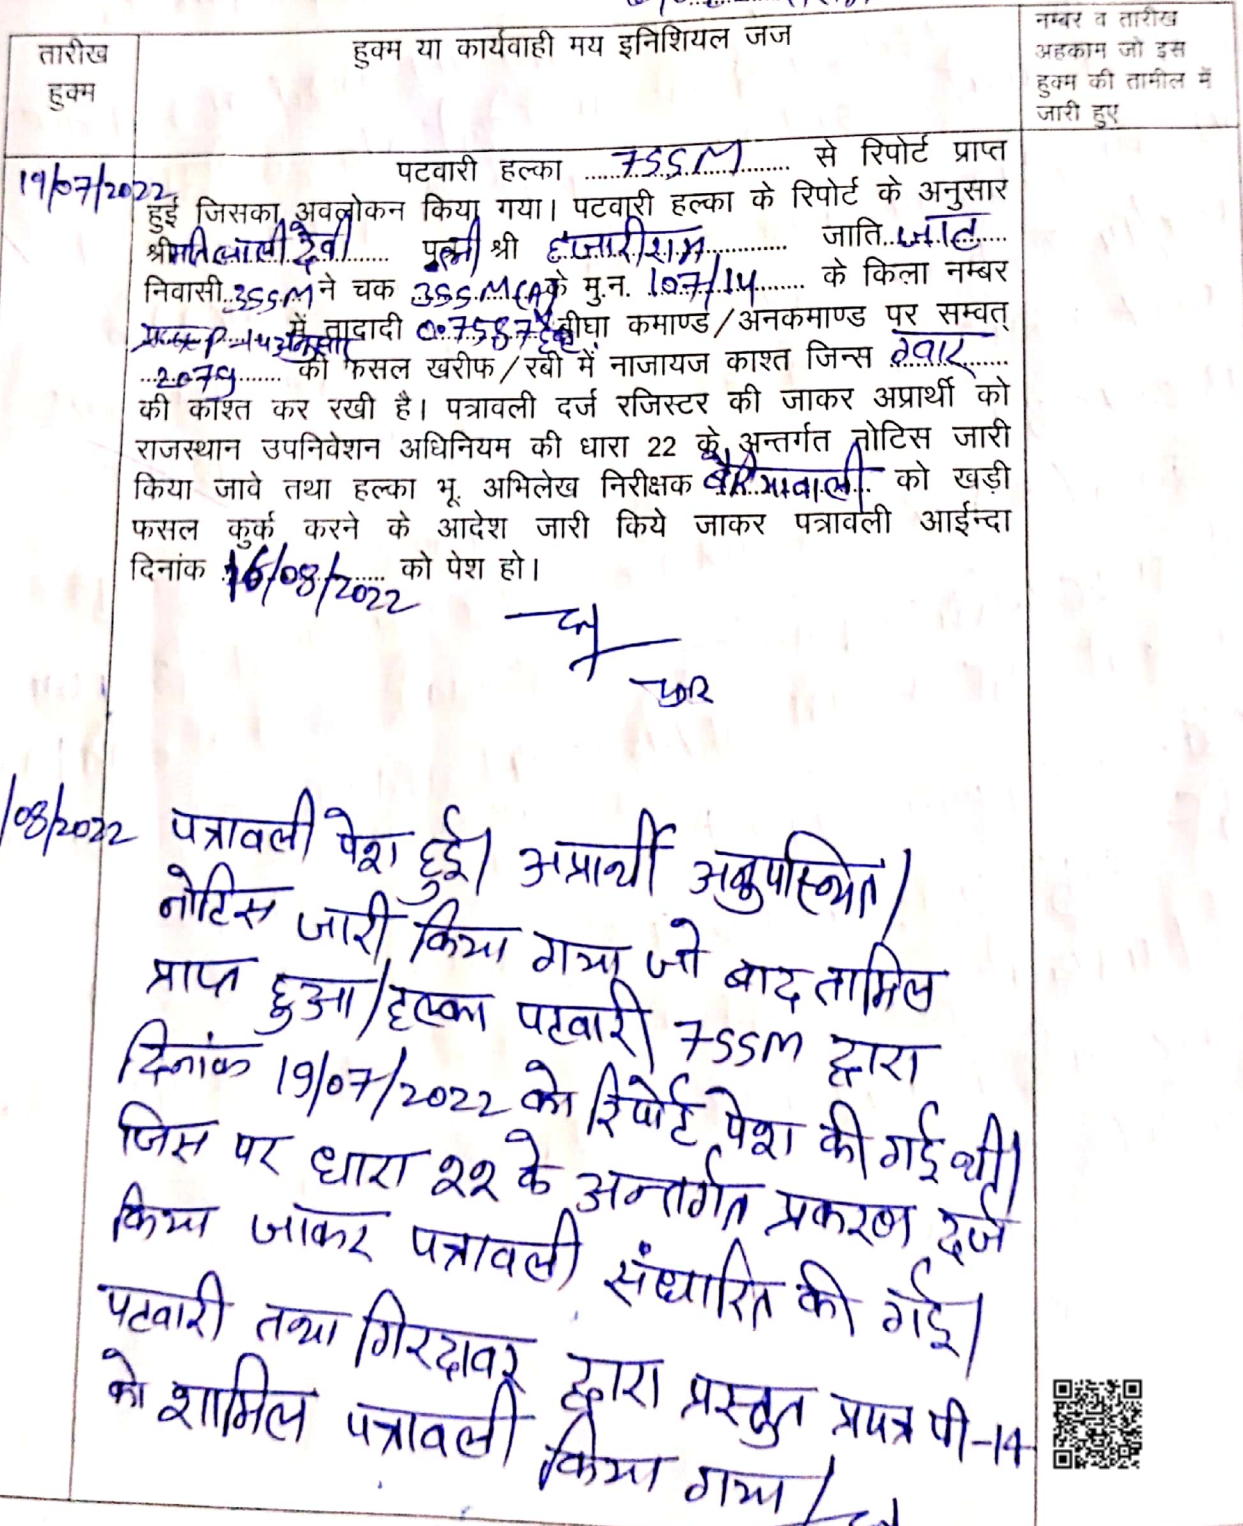 तारीख
हुक्म
हुक्म या कार्यवाही मय इनिशियल जज
नम्बर व तारीख
अहकाम जो इस
हुक्म की तामील में
जारी हुए
19/07/2022
पटवारी हल्का 7SSM से रिपोर्ट प्राप्त
हुई जिसका अवलोकन किया गया। पटवारी हल्का के रिपोर्ट के अनुसार
श्रीमति लाली देवी पुत्नी श्री हजारीराम जाति जाट
निवासी 3SSM ने चक 3SSM(A) के मु.न. 107/14 के किला नम्बर
P-14 अनुसार में तादादी 0.7587 है. बीघा कमाण्ड/अनकमाण्ड पर सम्वत्
2079 की फसल खरीफ/रबी में नाजायज काश्त जिन्स ग्वार
की काश्त कर रखी है। पत्रावली दर्ज रजिस्टर की जाकर अप्रार्थी को
राजस्थान उपनिवेशन अधिनियम की धारा 22 के अन्तर्गत नोटिस जारी
किया जावे तथा हल्का भू. अभिलेख निरीक्षक को खड़ी
फसल कुर्क करने के आदेश जारी किये जाकर पत्रावली आईन्दा
दिनांक 16/08/2022 को पेश हो।
/08/2022 पत्रावली पेश हुई। अप्रार्थी अनुपस्थित।
नोटिस जारी किया गया जो बाद तामिल
प्राप्त हुआ। हल्का पटवारी 7SSM द्वारा
दिनांक 19/07/2022 को रिपोर्ट पेश की गई थी।
जिस पर धारा २२ के अन्तर्गत प्रकरण दर्ज
किया जाकर पत्रावली संधारित की गई।
पटवारी तथा गिरदावर द्वारा प्रस्तुत प्रपत्र पी-14
को शामिल पत्रावली किया गया।